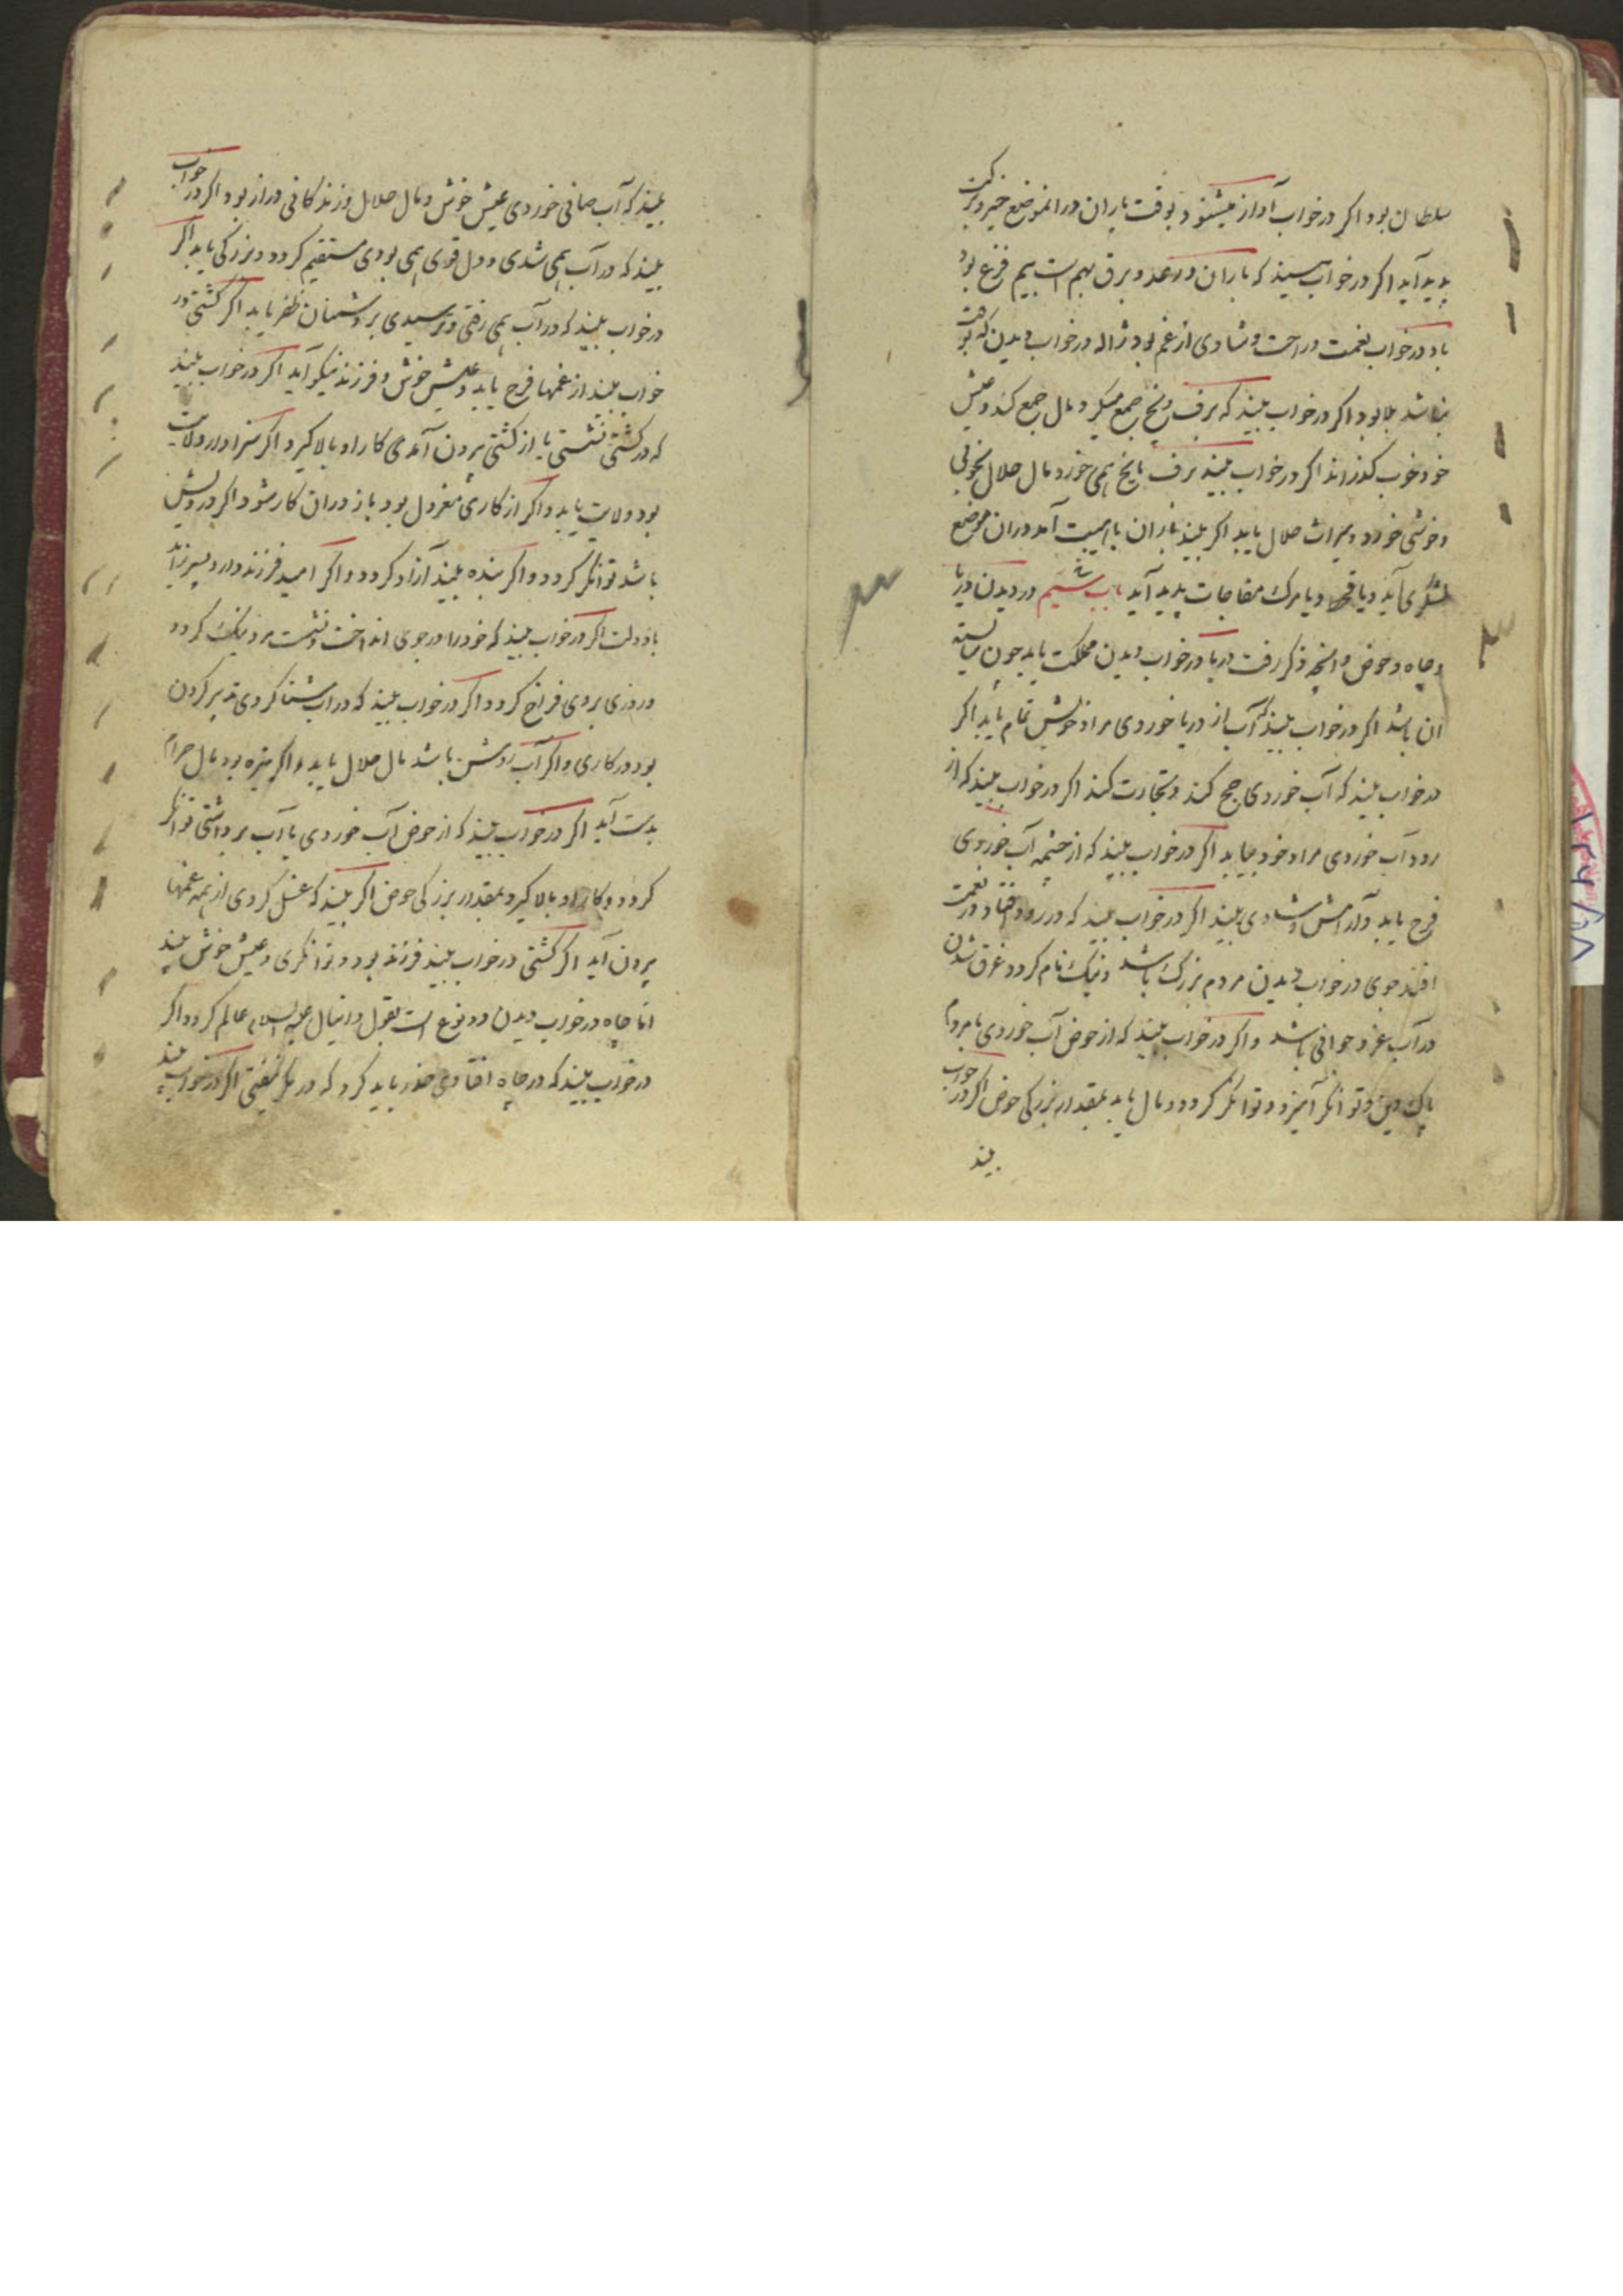 سلطان بود اکر در خواب آواز میشنود بوقت باران در انموضع خیر و برکت
پدید آید اکر در خواب بیند که باران و رعد و برق بهم است بیم فزع بود
باد در خواب نعمت و راحت و شادی از غم بود ژاله در خواب دیدن که بوقت
نباشد بلا بود اکر در خواب بیند که برف و یخ جمع میکرد مال جمع کند و عیش
خود خوب کذراند اکر در خواب بیند برف یا یخ همی خورد مال حلال بخوبی
و خوشی خورد و میراث حلال یابد اکر بیند باران با هیبت آمد در ان موضع
لشکری آید و یا قحط و یا مرک مفاجات پدید آید باب ششم در دیدن دریا
و چاه و حوض و انچه ذکر رفت دریا در خواب دیدن مملکت یابد چون شایسته
ان باشد اکر در خواب بیند که آب از دریا خوردی مراد خویش تمام یابد اکر
در خواب بیند که آب خوردی حج کند و تجارت کند اکر در خواب بیند که از
رود آب خوردی مراد خود بیابد اکر در خواب بیند که از چشمه آب خوردی
فرح یابد و آرامش و شادی بیند اکر در خواب بیند که در رود افتاد در نعمت
افتد جوی در خواب دیدن مردم بزرک باشد و نیک نام کردد غرق شدن
در آب عز و جوانی باشد و اکر در خواب بیند که از حوض آب خوردی با مردم
پاک دین و توانکر آمیزد و توانکر کردد و مال یابد بمقدار بزرکی حوض اکر در خواب
بیند
بیند که آب صافی خوردی عیش خوش و مال حلال و زندکانی دراز بود اکر در خواب
بیند که در آب همی شدی و دل قوی همی بودی مستقیم کردد و بزرکی یابد اکر
در خواب بیند که در آب همی رفتی و ترسیدی بر دشمنان ظفر یابد اکر کشتی در
خواب بیند از غمها فرح یابد و عیش خوش و فرزند نیکو آید اکر در خواب بیند
که در کشتی نشستی یا از کشتی بیرون آمدی کار او بالا کیرد و اکر سزاوار ولایت
بود ولایت یابد و اکر از کاری معزول بود باز در ان کار شود اکر درویش
باشد توانکر کردد و اکر بنده بیند آزاد کردد و اکر امید فرزند دارد پسر زاید
با دولت اکر در خواب بیند که خود را در جوی انداخت و نشست مرد نیک کردد
و روزی بر وی فراخ کردد اکر در خواب بیند که در آب شنا کردی تدبیر کردن
بود در کاری و اکر آب روشن باشد مال حلال یابد و اکر تیره بود مال حرام
بدست آید اکر در خواب بیند که از حوض آب خوردی یا آب برداشتی توانکر
کردد و کار او بالا کیرد بمقدار بزرکی حوض اکر بیند که غسل کردی از همه غمها
بیرون آید اکر کشتی در خواب بیند فرزند بود و توانکری و عیش خوش بیند
اما چاه در خواب دیدن دو نوع است بقول دانیال علیه السلام عالم کردد اکر
در خواب بیند که در چاه افتادی حذر باید کرد که در مکر نیفتی اکر در خواب بیند